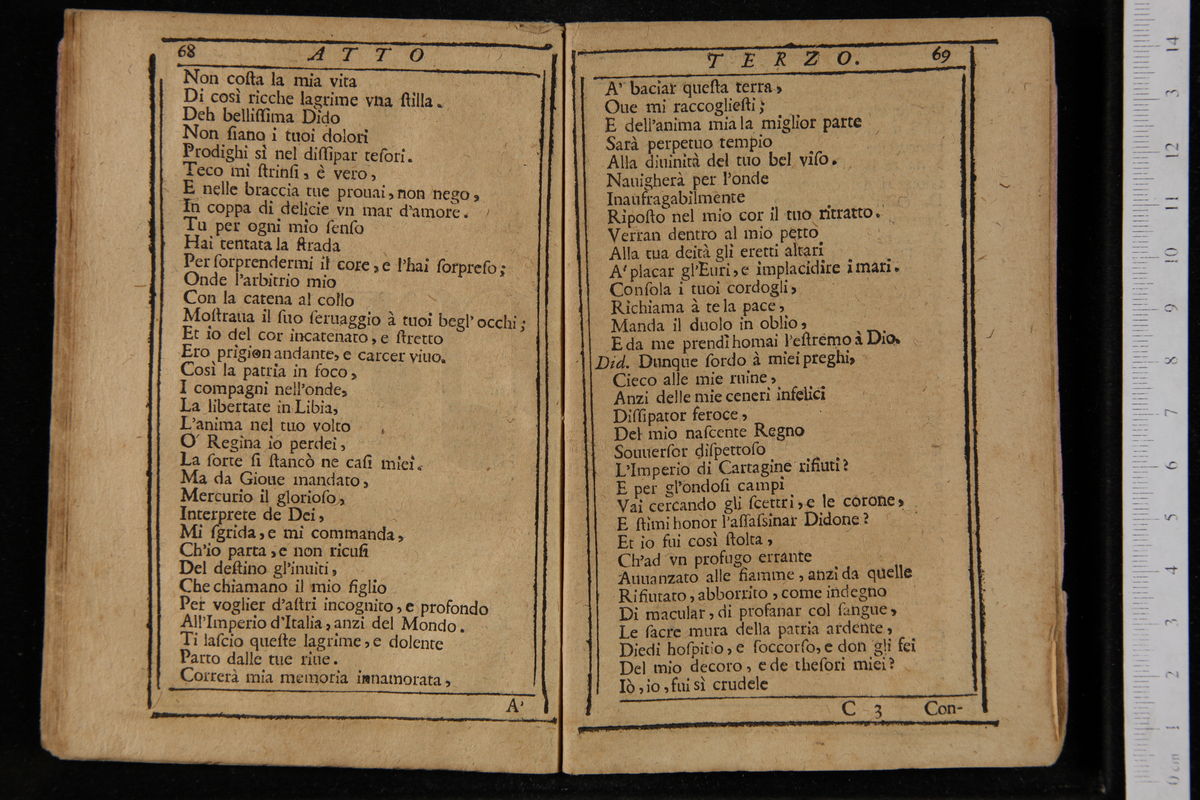 68 ATTO
Non coſta la mia vita
Di così ricche lagrime vna ſtilla.
Deh belliſſima Dido
Non ſiano i tuoi dolori
Prodighi sì nel diſſipar teſori.
Teco mi ſtrinſi, è vero,
E nelle braccia tue prouai, non nego,
In coppa di delicie vn mar d'amore.
Tu per ogni mio ſenſo
Hai tentata la ſtrada
Per ſorprendermi il core, e l'hai ſorpreſo;
Onde l'arbitrio mio
Con la catena al collo
Moſtraua il ſuo ſeruaggio à tuoi begl' occhi;
Et io del cor incatenato, e ſtretto
Ero prigion andante, e carcer viuo.
Così la patria in foco,
I compagni nell'onde,
La libertate in Libia,
L'anima nel tuo volto
O' Regina io perdei,
La ſorte ſi ſtancò ne caſi miei.
Ma da Gioue mandato,
Mercurio il glorioſo,
Interprete de Dei,
Mi ſgrida, e mi commanda,
Ch'io parta, e non ricuſi
Del deſtino gl'inuiti,
Che chiamano il mio figlio
Per voglier d'aſtri incognito, e profondo
All'Imperio d'Italia, anzi del Mondo.
Ti laſcio queſte lagrime, e dolente
Parto dalle tue riue.
Correrà mia memoria innamorata,
A'
TERZO. 69
A' baciar queſta terra,
Oue mi raccoglieſti;
E dell'anima mia la miglior parte
Sarà perpetuo tempio
Alla diuinità del tuo bel viſo.
Nauigherà per l'onde
Inaufragabilmente
Ripoſto nel mio cor il tuo ritratto.
Verran dentro al mio petto
Alla tua deità gli eretti altari
A' placar gl'Euri, e implacidire i mari.
Conſola i tuoi cordogli,
Richiama à te la pace,
Manda il duolo in oblio,
E da me prendi homai l'eſtremo à Dio.
Did. Dunque ſordo à miei preghi,
Cieco alle mie ruine,
Anzi delle mie ceneri infelici
Diſſipator feroce,
Del mio naſcente Regno
Souuerſor diſpettoſo
L'Imperio di Cartagine rifiuti?
E per gl'ondoſi campi
Vai cercando gli ſcettri, e le corone,
E ſtimi honor l'aſſaſsinar Didone?
Et io fui così ſtolta,
Ch'ad vn profugo errante
Auuanzato alle fiamme, anzi da quelle
Rifiutato, abborrito, come indegno
Di macular, di profanar col ſangue,
Le ſacre mura della patria ardente,
Diedi hoſpitio, e ſoccorſo, e don gli fei
Del mio decoro, e de theſori miei?
Iò, io, fui sì crudele
C 3 Con-
14
3
12
11
10
9
8
7
6
5
4
3
2
1
0 cm